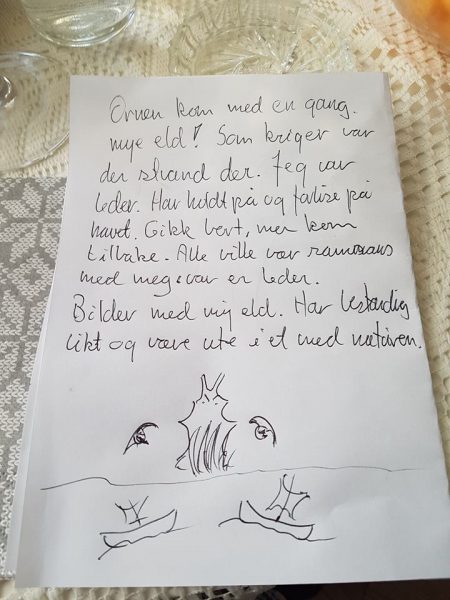 Ørnen kom med en gang.
mye eld! Som kriger var
der strand der. Jeg var
leder. Har holdt på og forlise på
havet. Gikk bort, men kom
tilbake. Alle ville vær sammans
med meg var er leder.
Bilder med my eld. Har bestandig
likt og være ute i et med naturen.